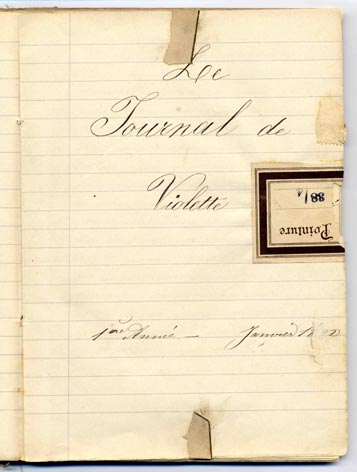 Le
Journal de
Violette
88/4
Pointure
1ère Année — Janvier